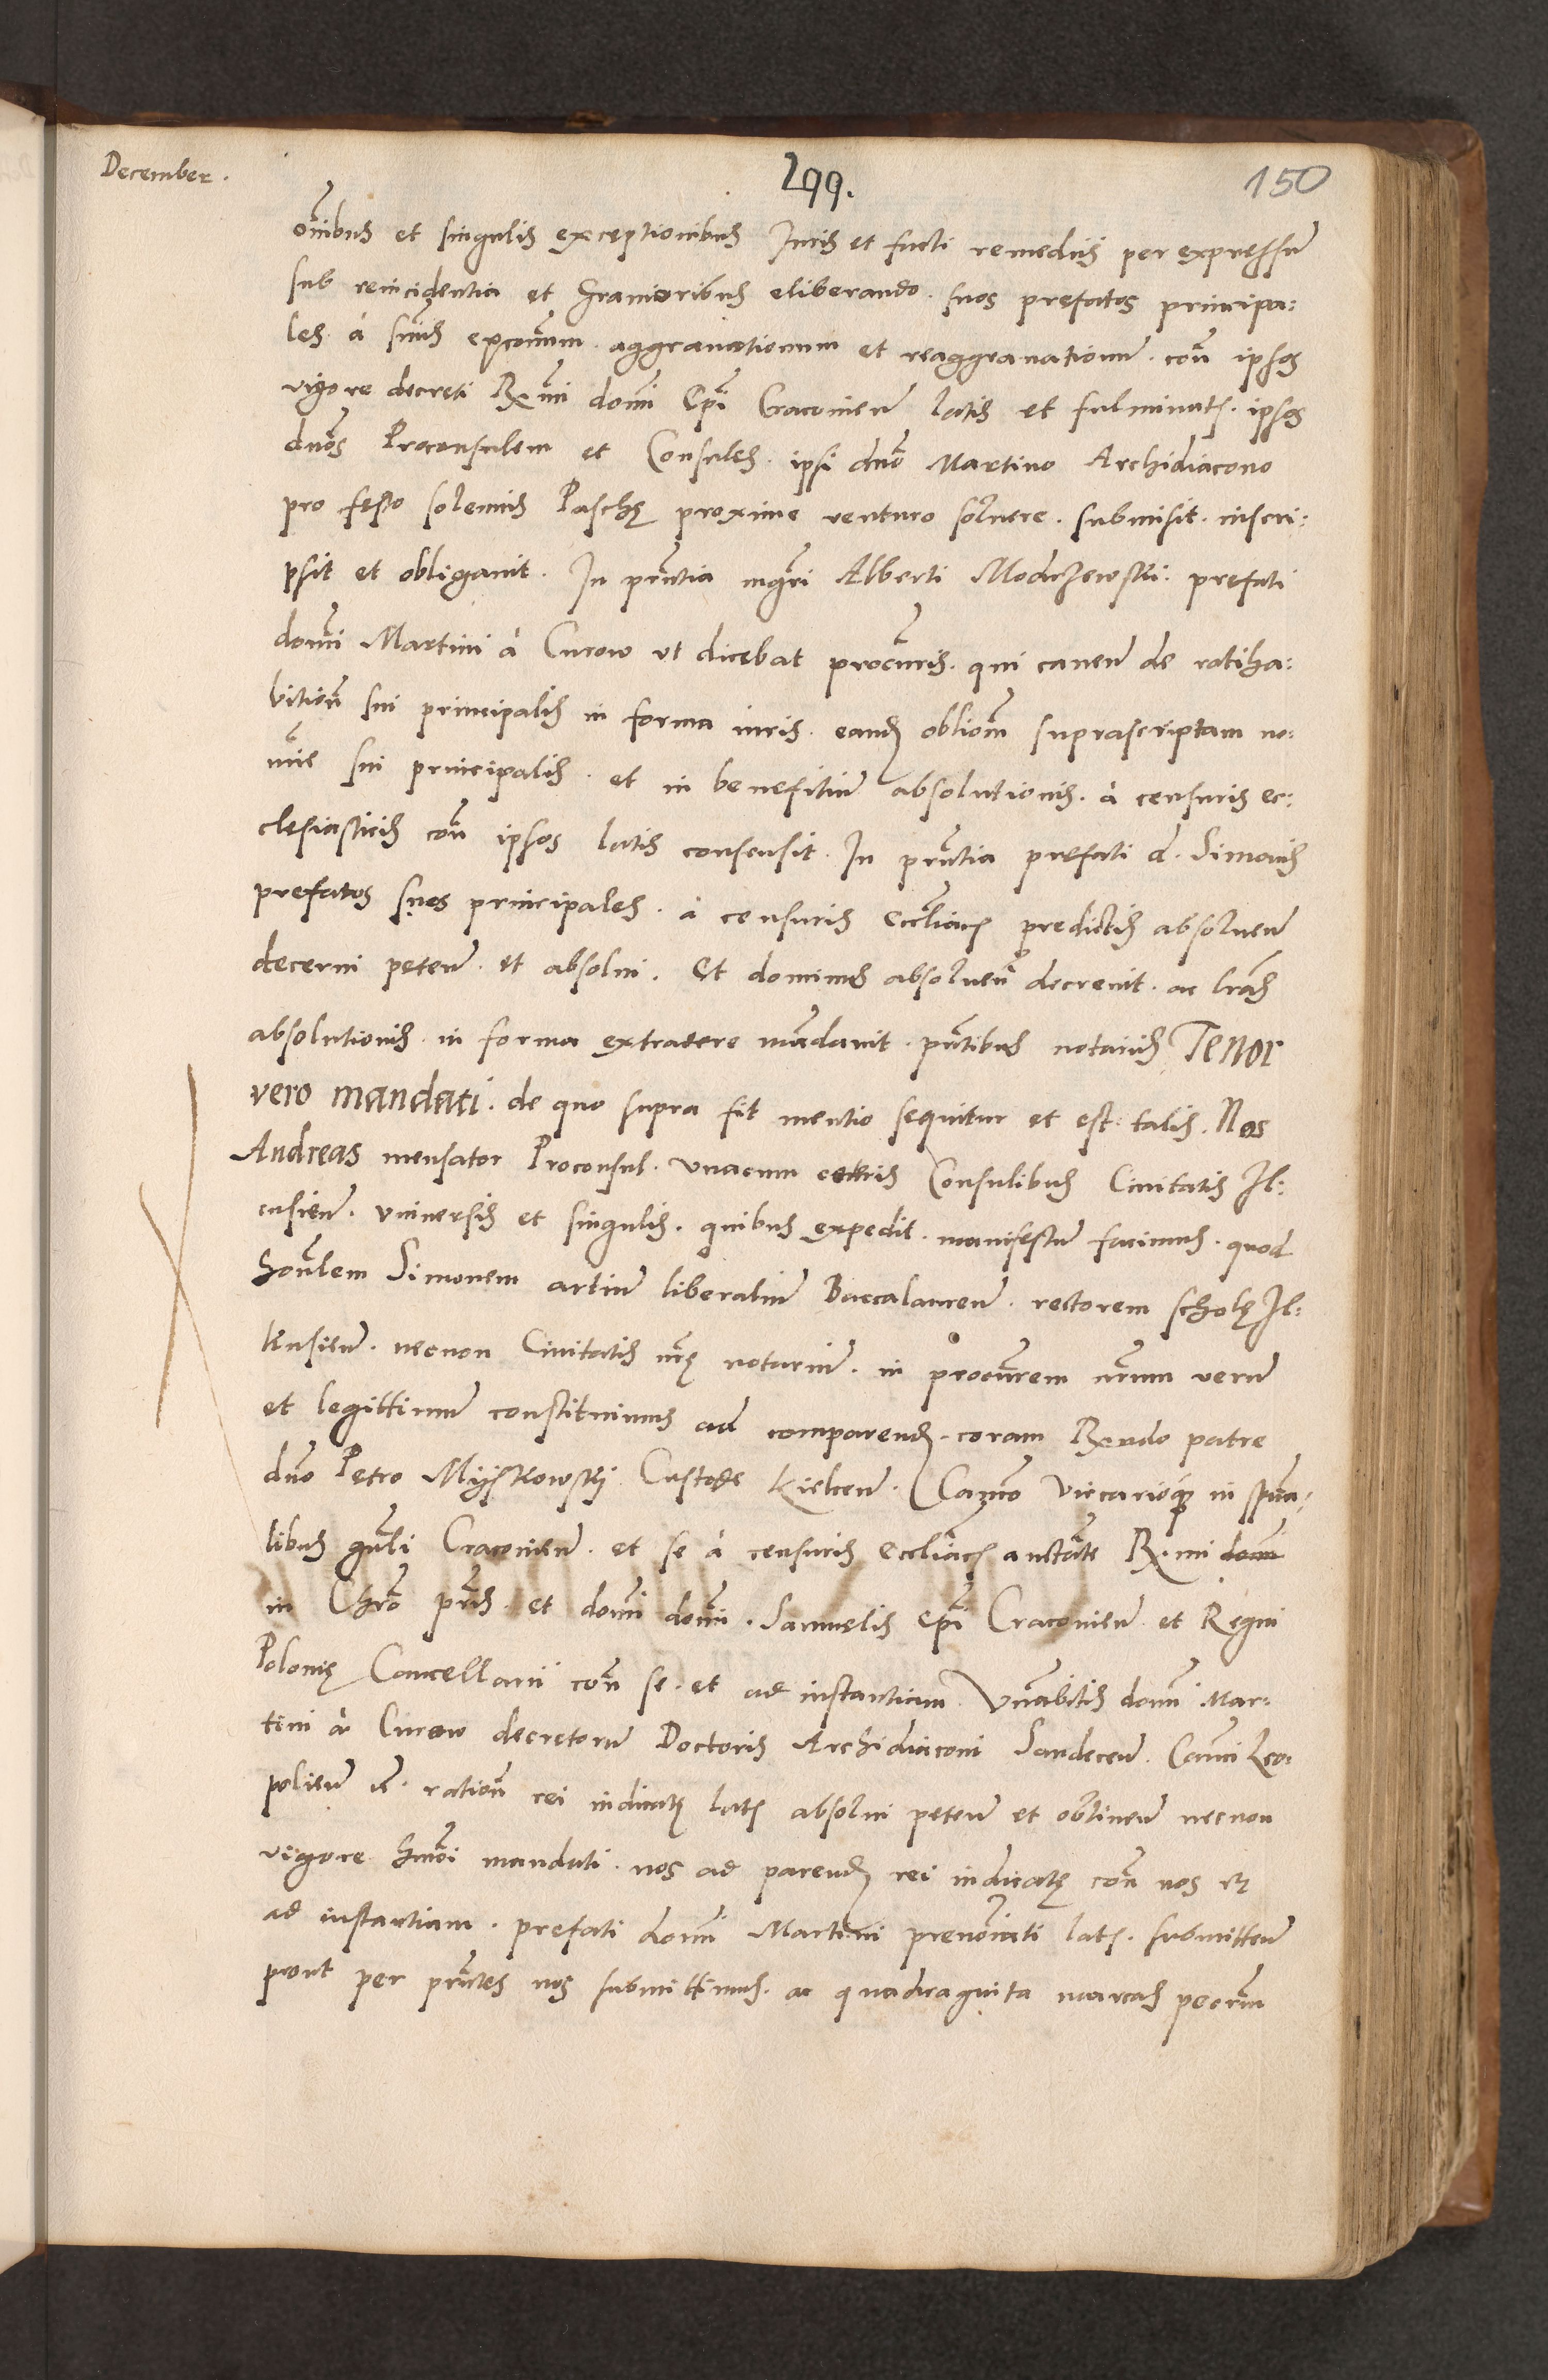 December.
299.
150
om̅ibus et singulis exceptionibus Iuris et facti remediis per expressu̅
sub reincidentia et grauioribus eliberando. suos prefatos principa:
les à sn̅iis exco̅mum. aggrauationum et reaggrauationu̅. con̅ ipsos
vigore decreti R.mi dom̅i Ep̅i Cracouien̅ latis et fulminatis. ipsos
dn̅os Proconsulem et Consules. ipsi dn̅o Martino Archidiacono
pro festo solemnis Paschę proxime venturo soluere. submisit. inscri:
psit et obligauit. In pn̅tia mgr̅i Alberti Modrzewski. prefati
dom̅i Martini à Curow vt dicebat procur̅is. qui cauen̅ de ratiha:
bition̅ sui principalis in forma iuris. eand̅ oblio̅m suprascriptam no:
mi̅e sui principalis. et in benefitiu̅ absolutionis. à censuris ec:
clesiasticis con̅ ipsos latis consensit. In pn̅tia prefati d. Simonis
prefatos suos principales. à censuris eccl̅iacis predictis absoluen̅
decerni peten̅. et absolui. Et dominus absoluen̅ decreuit. ac lr̅as
absolutionis. in forma extradere ma̅dauit. pn̅tibus notariis Tenor
vero mandati. de quo supra fit mentio sequitur et est talis. Nos
Andreas mensator Proconsul. vnacum cetteris Consulibus Ciuitatis Il:
cusien̅. vniuersis et singulis. quibus expedit. manifestu̅ facimus. quod
hon̅lem Simonem artiu̅ liberaliu̅ Baccalaureu̅. rectorem scholę Il:
kusien̅. necnon Ciuitatis nr̅ę notariu̅. in procur̅em nr̅um veru̅
et legittimu̅ constituimus ad comparend̅. coram R.ndo patre
dn̅o Petro Myskowskj Custode Kielcen̅. Can̅co Vicarioq̅ in spu̅a:
libus gn̅li Cracouien̅. et se à censuris eccl̅iacis auctor̅te R.mi dom̅
in Chr̅o pr̅is. et dom̅i dom̅i. Samuelis ep̅i Cracouien̅. et Regni
Polonię Cancellarii con̅ se. et ad instantiam. Vn̅abilis dom̅i Mar:
tini à Curow decretoru̅ Doctoris Archidiaconi Sandecen̅. Can̅ci Leo:
polien̅ ration̅ rei iudicatę latis absolui peten̅ et obtinen̅ necnon
vigore hm̅oi mandati. nos ad parend̅ rei iudicatę con̅ nos et
ad instantiam. prefati dom̅i Martini prenom̅iati latis. submitten̅
prout per pn̅tes nos submittimus. ac quadraginta marcas pecr̅um